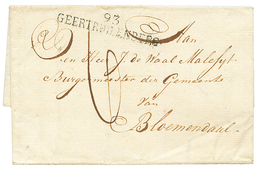 93
GEERTRUIDENBERG
Aan
den Heer J. de Waal Malefyt
Burgermeester der Gemeente
van
Bloemendaal